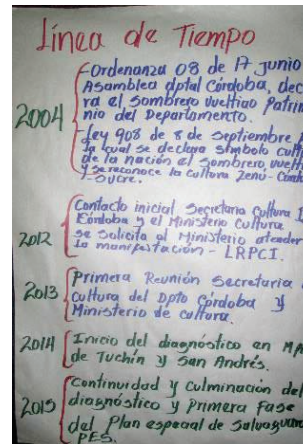 Línea de Tiempo
2004
-Ordenanza 08 de 17 junio
Asamblea dptal Córdoba, dec
ra el sombrero vueltiao patrim
nio del Departamento.
-Ley 908 de 8 de septiembre
la cual se declara símbolo cult
de la nación el sombrero vuelt
y se reconoce la cultura Zenú-
-Sucre.
2012
Contacto inicial Secretaria Cultura
Córdoba y el Ministerio Cultura
se solicita al Ministerio atender
la manifestación - LRPCI.
2013
Primera Reunión secretaria
cultura del Dpto Córdoba y
Ministerio de cultura.
2014
Inicio del diagnostico en MA
de Tuchín y San Andrés.
2015
Continuidad y Culminación del
diagnóstico y Primera Fase
del Plan especial de Salvaguar
PES.